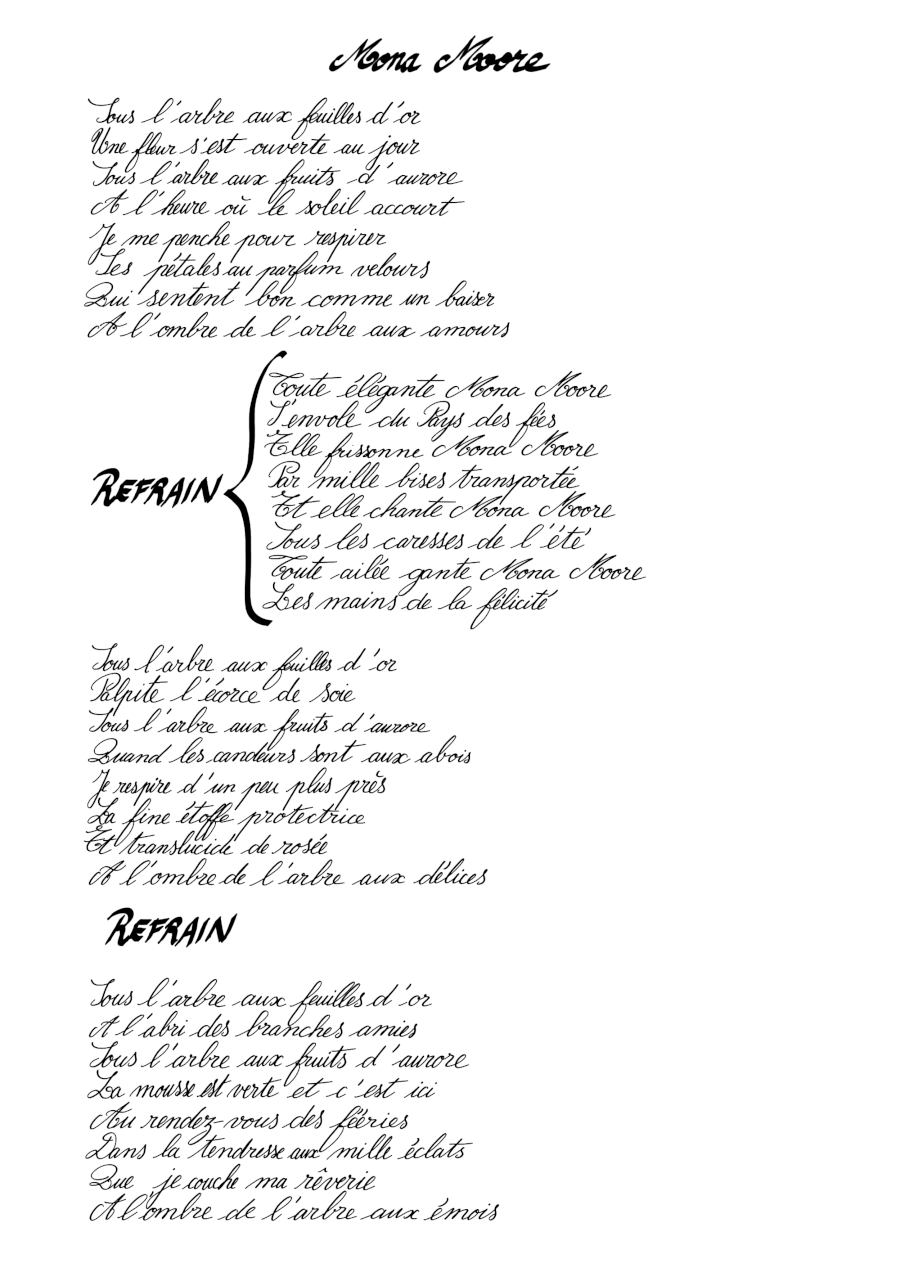 Mona Moore
Sous l'arbre aux feuilles d'or
Une fleur s'est ouverte au jour
Sous l'arbre aux fruits d'aurore
A l'heure où le soleil accourt
Je me penche pour respirer
Ses pétales au parfum velours
Qui sentent bon comme un baiser
A l'ombre de l'arbre aux amours
Toute élégante Mona Moore
S'envole du Pays des fées
Elle frissonne Mona Moore
REFRAIN
Par mille bises transportée
Et elle chante Mona Moore
Sous les caresses de l'été
Toute ailée gante Mona Moore
Les mains de la félicité
Sous l'arbre aux feuilles d'or
Palpite l'écorce de soie
Sous l'arbre aux fruits d'aurore
Quand les candeurs sont aux abois
Je respire d'un peu plus près
La fine étoffe protectrice
Et translucide de rosée
A l'ombre de l'arbre aux délices
REFRAIN
Sous l'arbre aux feuilles d'or
A l'abri des branches amies
Sous l'arbre aux fruits d'aurore
La mousse est verte et c'est ici
Au rendez-vous des fééries
Dans la tendresse aux mille éclats
Que je couche ma rêverie
A l'ombre de l'arbre aux émois